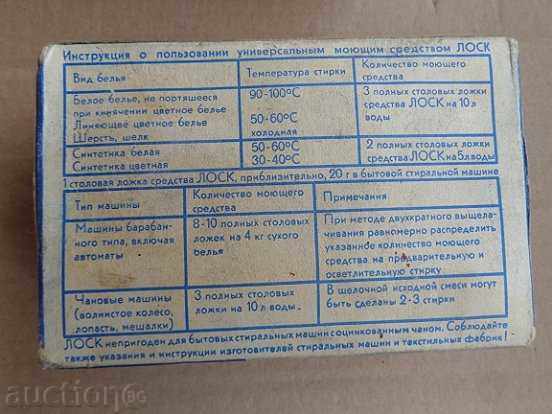 Инструкция о пользовании универсальным моющим средством ЛОСК
Вид белья Температура стирки Количество моющего
средства
Белое белье, не портящееся 90-100°С 3 полных столовых ложки
при кипячении цветное белье средства ЛОСК на 10 л
Линяющее цветное белье 50-60°С воды
Шерсть, шелк холодная
Синтетика белая 50-60°С 2 полных столовых ложки
Синтетика цветная 30-40°С средства ЛОСК на 5л воды
1 столовая ложка средства ЛОСК, приблизительно, 20 г в бытовой стиральной машине
Тип машины Количество моющего Примечания
средства
Машины барабан- 8-10 полных столовых При методе двухкратного выщела-
ного типа, включая ложек на 4 кг сухого чивания равномерно распределить
автоматы белья указанное количество моющего
средства на предварительную и
осветлительную стирку
Чановые машины 3 полных столовых В щелочной исходной смеси могут
(волнистое колесо, ложки на 10 л воды. быть сделаны 2-3 стирки
лопасть, мешалки)
ЛОСК непригоден для бытовых стиральных машин с оцинкованным чаном. Соблюдайте
также указания и инструкции изготовителей стиральных машин и текстильных фабрик!
auction.bg